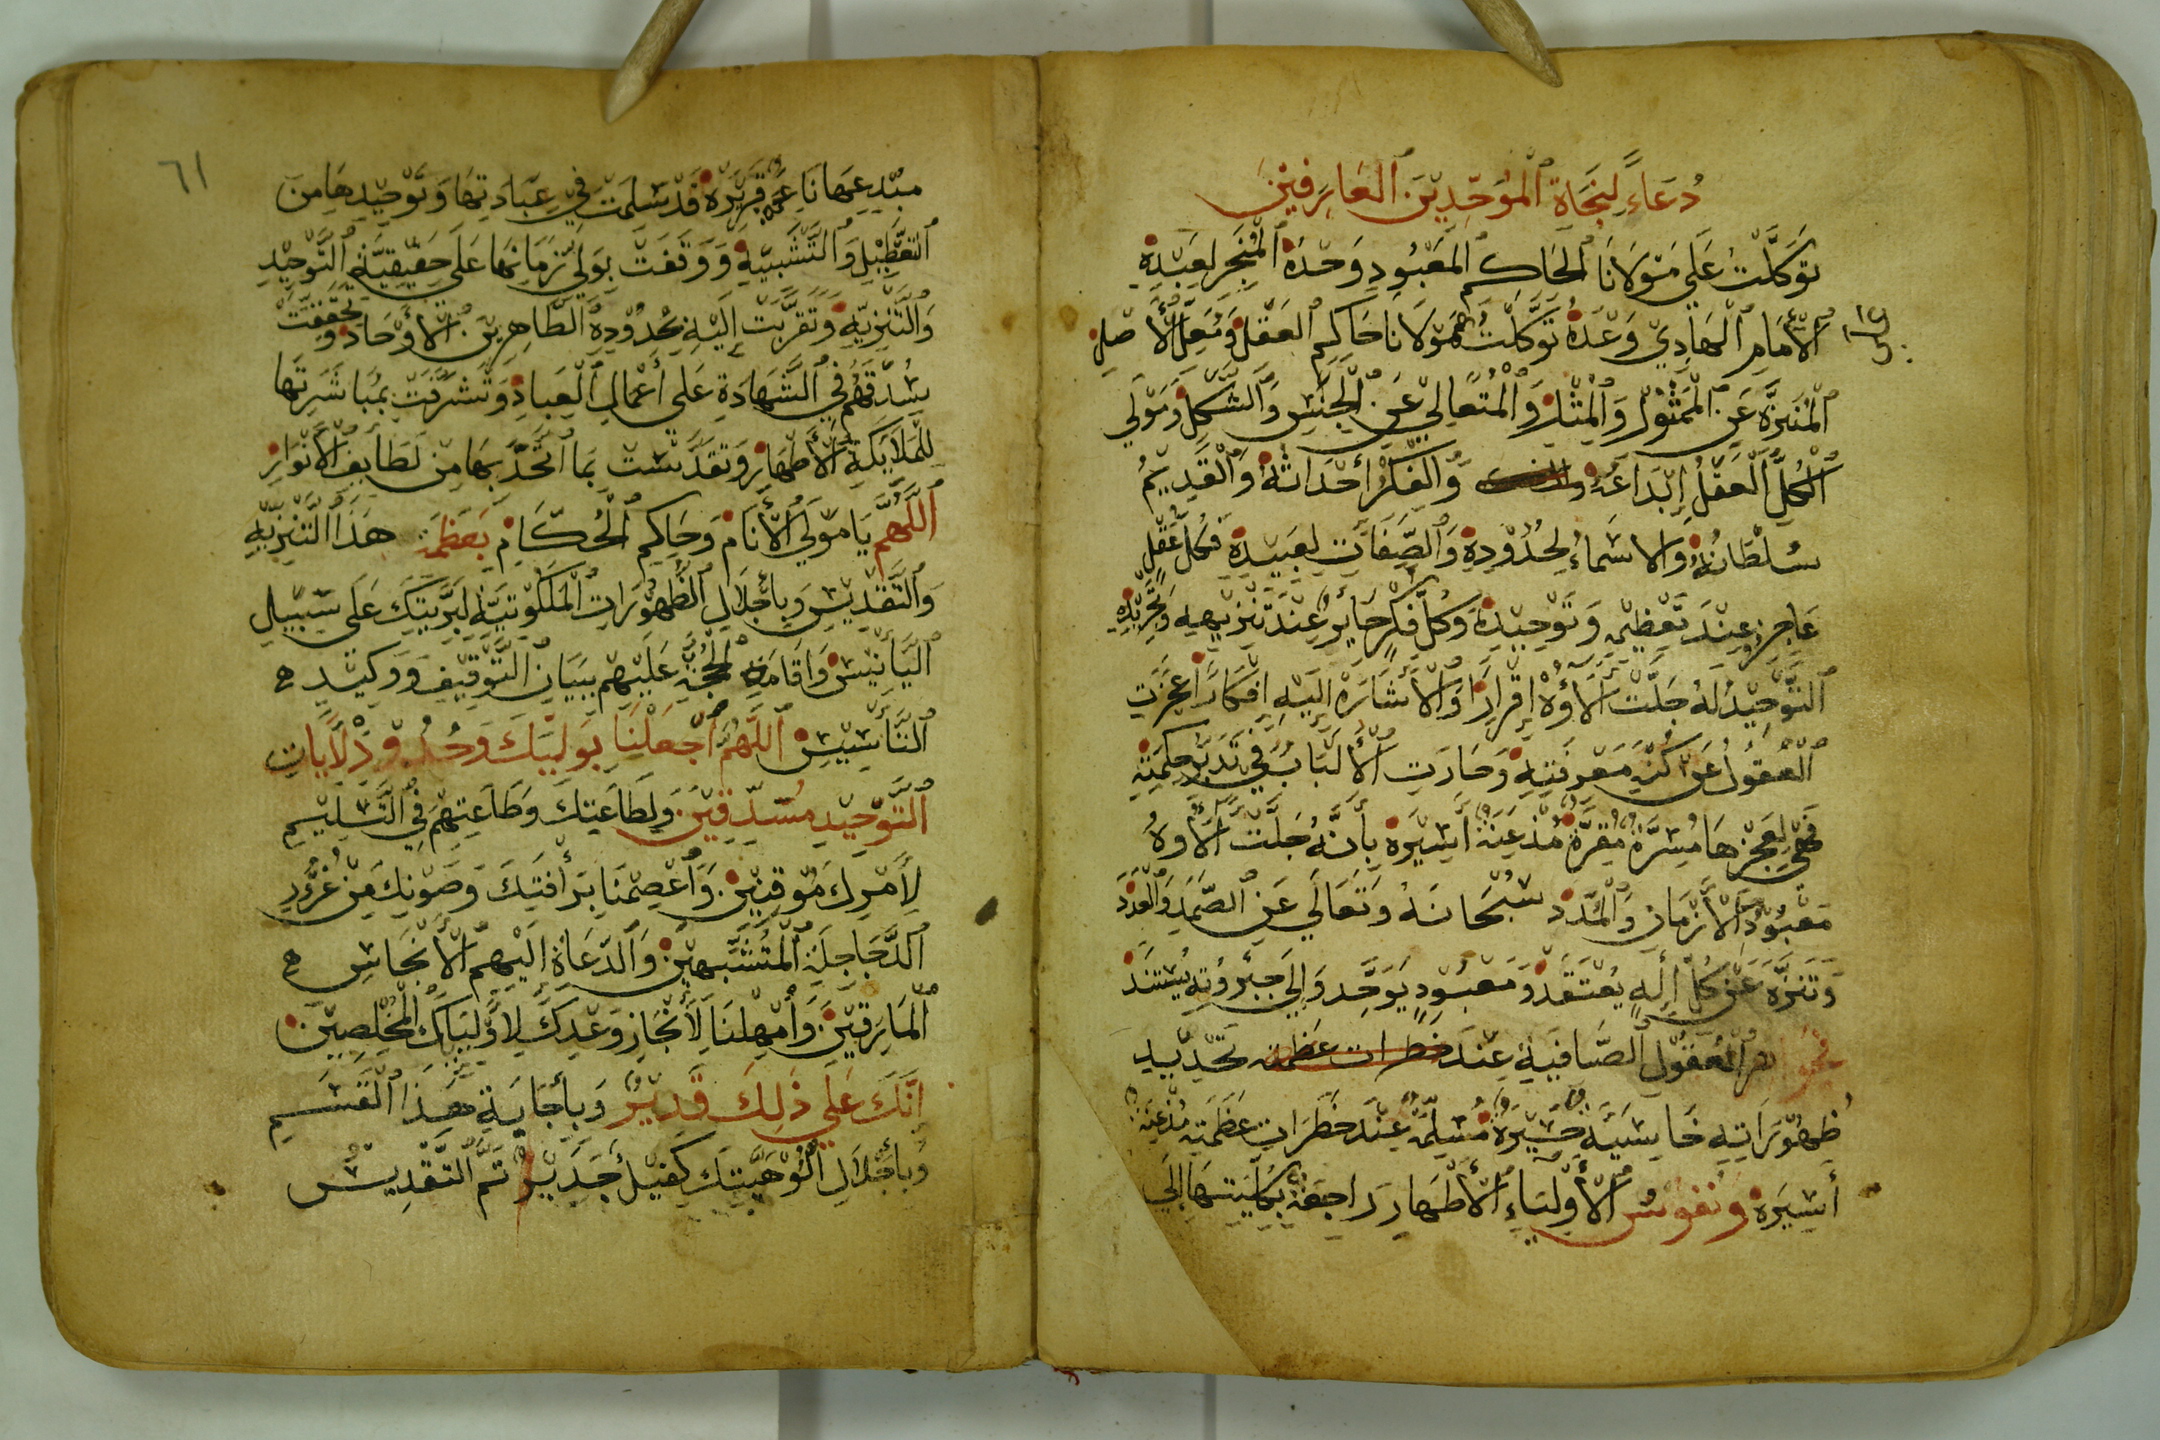 دُعَاءٌ لِنَجَاةِ ٱلْمُوَحِّدِيْنَ ٱلْعَارِفِيْنَ
تَوَكَّلْتُ عَلَي مَوْلَانَا ٱلْحَاكِمِ ٱلْمَعْبُودِ وَحْدَهُ ٱلْمُنْجِزِ لِعَبْدِهِ
ٱلْأَمَامِ ٱلْهَادِيْ وَعْدَهُ تَوَكَّلْتُ مَوْلَانَا حَاكِمِ ٱلْعَقْلِ وَمُعِلِّ ٱلْأَصْلِ
ٱلْمُنَزَّهِ عَنِ ٱلْمَمْثُوْلِ وَٱلْمِثْلِ وَٱلْمُتَعَالِيْ عَنِ ٱلْجِنْسِ وَٱلشَّكْلِ وَمَوْلَي
ٱلْكُلِّ ٱلْعَقْلُ إِبْدَاعُهُ وَالْفِكْرُ أَحْدَاثُهُ وَٱلْقَدِيْمُ
سُلْطَانُهُ وَالاسْمَاءُ لِحُدُوْدِهِ وَٱلصِّفَاتُ لِعَبِيْدِهِ فَكُلُّ عَقْلٍ
عَاجِزٌ عِنْدَ تَعْظِيْمِهِ وَتَوْحِيْدِهِ وَكُلُّ فِكْرٍ حَايِرٌ عِنْدَ تَنْزِيْهِهِ وَتَجْرِيْدِهِ
ٱلتَّوْحِيْدُ لَهُ جَلَّتْ آلَاؤُهُ إِقْرَارًا وَٱلْأَشَارَةُ الَيْهِ إِفْكَارًا عَجَزَتِ
ٱلْعُقُوْلُ عَنْ كُنْهِ مَعْرِفَتِهِ وَحَارَتِ ٱلْأَلْبَابُ فِي تَدَبُّرِ حِكْمَتِهِ
فَهِيَ لِعَجْزِهَا مُسِرَّةٌ مُقِرَّةٌ مُذْعِنَةٌ أَسِيْرَةٌ بِأَنَّهُ جَلَّتْ آلَاوهُ
مَعْبُوْدُ ٱلْأَزْمَانِ وَٱلْمُدَدِ سُبْحَانَهُ وَتَعَالَي عَنِ ٱلصَّمَدِ وَٱلْعَدَدِ
وَتَنَزَّهَ عَنْ كُلِّ إِلَهٍ يُعْتَقَدُ وَمَعْبُوْدٍ يُوَحَّدُ وَإِلَي جَبَرُوْتِهِ يُسْتَنَدُ
ٱلْعُقُوْلِ ٱلصَّافِيَةِ عِنْدَ خَطَرَاتِ عَظَمَتِه تَحْدِيْدِ
ظُهُوْرَاتِهِ خَاسِيَةٌ حَسِيْرَةٌ مُسَلِّمَةٌ عِنْدَ خَطَرَاتِ عَظَمَتِهِ مُذْعِنَةٌ
أَسِيْرَةٌ وَنُفُوْسُ ٱلْأَوْلِيَاءِ ٱلْأَطْهَارِ رَاجِعَةٌ بِكُلِّيَتِهَا إِلَي
٦١
مُبْدِعِهَا نَاعِمَةٌ قَرِيْرَةٌ قَدْ سَلِمَتْ فِيْ عِبَادَتِهَا وَتَوْحِيْدِهَا مِنَ
ٱلتَّعْطِيْلِ وَٱلتَّشْبِيْهِ وَوَقَفَتْ بِوَلِيِّ زَمَانِهَا عَلَي حَقِيْقِيَّةِ ٱلتَّوْحِيْدِ
وَٱلتَّنْزِيْهِ وَتَقَرَّبَتْ إِلَيْهِ بِحُدُوْدِهِ ٱلطَّاهِرِيْنَ ٱلْأَوْحَادِ وَتَحَقَّقَتْ
بِسُدْقِهِمْ فِي ٱلشَّهَادَةِ عَلَي أَعْمَالِ ٱلْعِبَادِ وَتَشَرَّفَتْ بِمُبَاشَرَتِهَا
لِلْمَلَايِكَةِ ٱلْأَطْهَارِ وَتَقَدَّسَتْ بِمَا ٱتَّحَدَ بِهَا مِنْ لَطَايِفِ ٱلْأَنْوَارِ
ٱللَّهُمَّ يَا مَوْلَي ٱلْأَنَامِ وَحَاكِمِ ٱلْحُكَّامِ بِعَظَمَةِ هَذَا ٱلتَّنْزِيْهِ
وَٱلتَّقْدِيْسِ وَبِأَجْلَالِ ٱلظُّهُوْرَاتِ ٱلْمَلَكُوْتِيَّةِ لِبَرِيَّتِكَ عَلَى سَبِيْلِ
ٱلتَّأْنِيْسِ وَاقَامَةِ ٱلْحُجَّةِ عَلَيْهِمْ بِبَيَانِ ٱلتَّوْقِيْفِ وَوَكِيْدِ
ٱلتَّأْسِيْسِ ٱللَّهُمَّ ٱجْعَلْنَا بِوَلِيِّكَ وَحُدُوْدِ لَايَاتِ
ٱلتَّوْحِيْدِ مُسَدِّقِيْنَ وَلِطَاعَتِكَ وَطَاعَتِهِمْ فِي ٱلتَّسْلِيْمِ
لِأَمْرِكَ مُوْقِنِيْنَ وَٱعْصِمْنَا بِرَأْفَتِكَ وَصَوْنِكَ مِنْ غُرُوْرِ
ٱلدَّجَاجِلَةِ ٱلْمُتَشَبِّهِيْنَ وَٱلدُّعَاةِ إِلَيْهِمُ ٱلْأَنْجَاسِ
ٱلْمَارِقِيْنَ وَأَمْهِلْنَا لِأَنْجَازِ وَعْدِكَ لِأَوْلِيَائِكَ ٱلْمُخْلِصِيْنَ
إِنَّكَ عَلَي ذَلِكَ قَدِيْرٌ وَبِأَجَابَةِ هَذَا ٱلْقَسَمِ
وَبِأَجْلَالِ أُلُوْهِيَّتِكَ كَفِيْلٌ جَدِيْرٌ تَمَّ ٱلتَّقْدِيْسُ